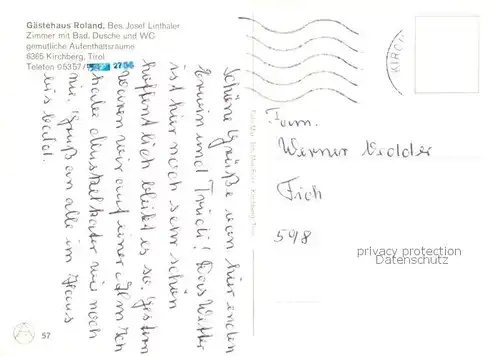 Gästehaus Roland, Bes. Josef Linthaler
Zimmer mit Bad, Dusche und WC
gemütliche Aufenthaltsräume
6365 Kirchberg, Tirol
Telefon 05357/ 27 94
Schöne Grüße von hier senden
Erwin und Trudi! Das Wetter
ist hier noch sehr schön
hoffentlich bleibt es so. Gestern
waren wir auf einer Alm Ich
habe Muskelkater wie noch
nie. Gruß an alle im Haus
bis bald.
Fam.
Werner Vedder
Fich
598
KIRCH
privacy protection
Datenschutz
57